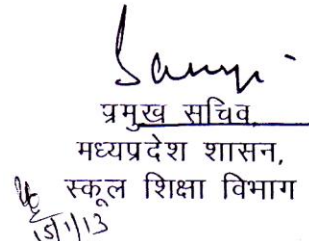 प्रमुख सचिव,
मध्यप्रदेश शासन,
स्कूल शिक्षा विभाग
15/1/13